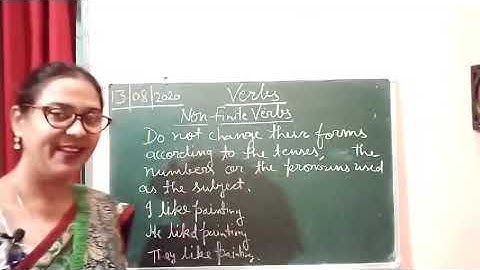 13/08/2020
Verbs
Non-finite Verbs
Do not change these forms
according to the tenses, the
numbers or the pronouns used
as the subject.
I like painting
He like painting
They like painting.